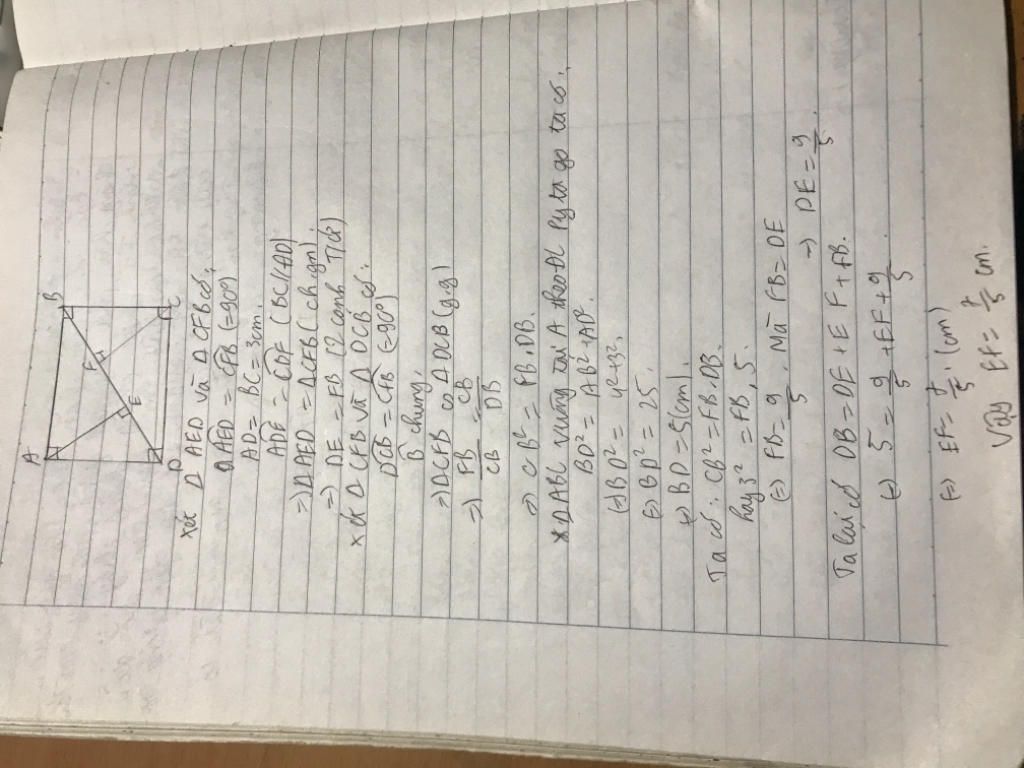 A B
F
E
D C
Xét Δ AED và Δ CFB có:
AED = CFB (=90°)
AD = BC = 3cm.
ADE = CDF (BC//AD)
=> Δ AED = Δ CFB (ch.gn)
=> DE = FB (2 cạnh T/Ứ)
* Xét Δ CFB và Δ DCB có:
DCB = CFB (=90°)
B chung.
=> Δ CFB ∽ Δ DCB (g.g)
=> FB/CB = CB/DB
=> CB² = FB.DB.
* Δ ABC vuông tại A theo ĐL Pytago ta có.
BD² = AB² + AD².
(=) BD² = 4² + 3².
(=) BD² = 25.
(=) BD = 5 (cm)
Ta có: CB² = FB.DB.
hay 3² = FB.5.
(=) FB = 9/5. Mà FB = DE
-> DE = 9/5.
Ta lại có DB = DE + EF + FB.
(=) 5 = 9/5 + EF + 9/5.
(=) EF = 7/5. (cm)
Vậy EF = 7/5 cm.